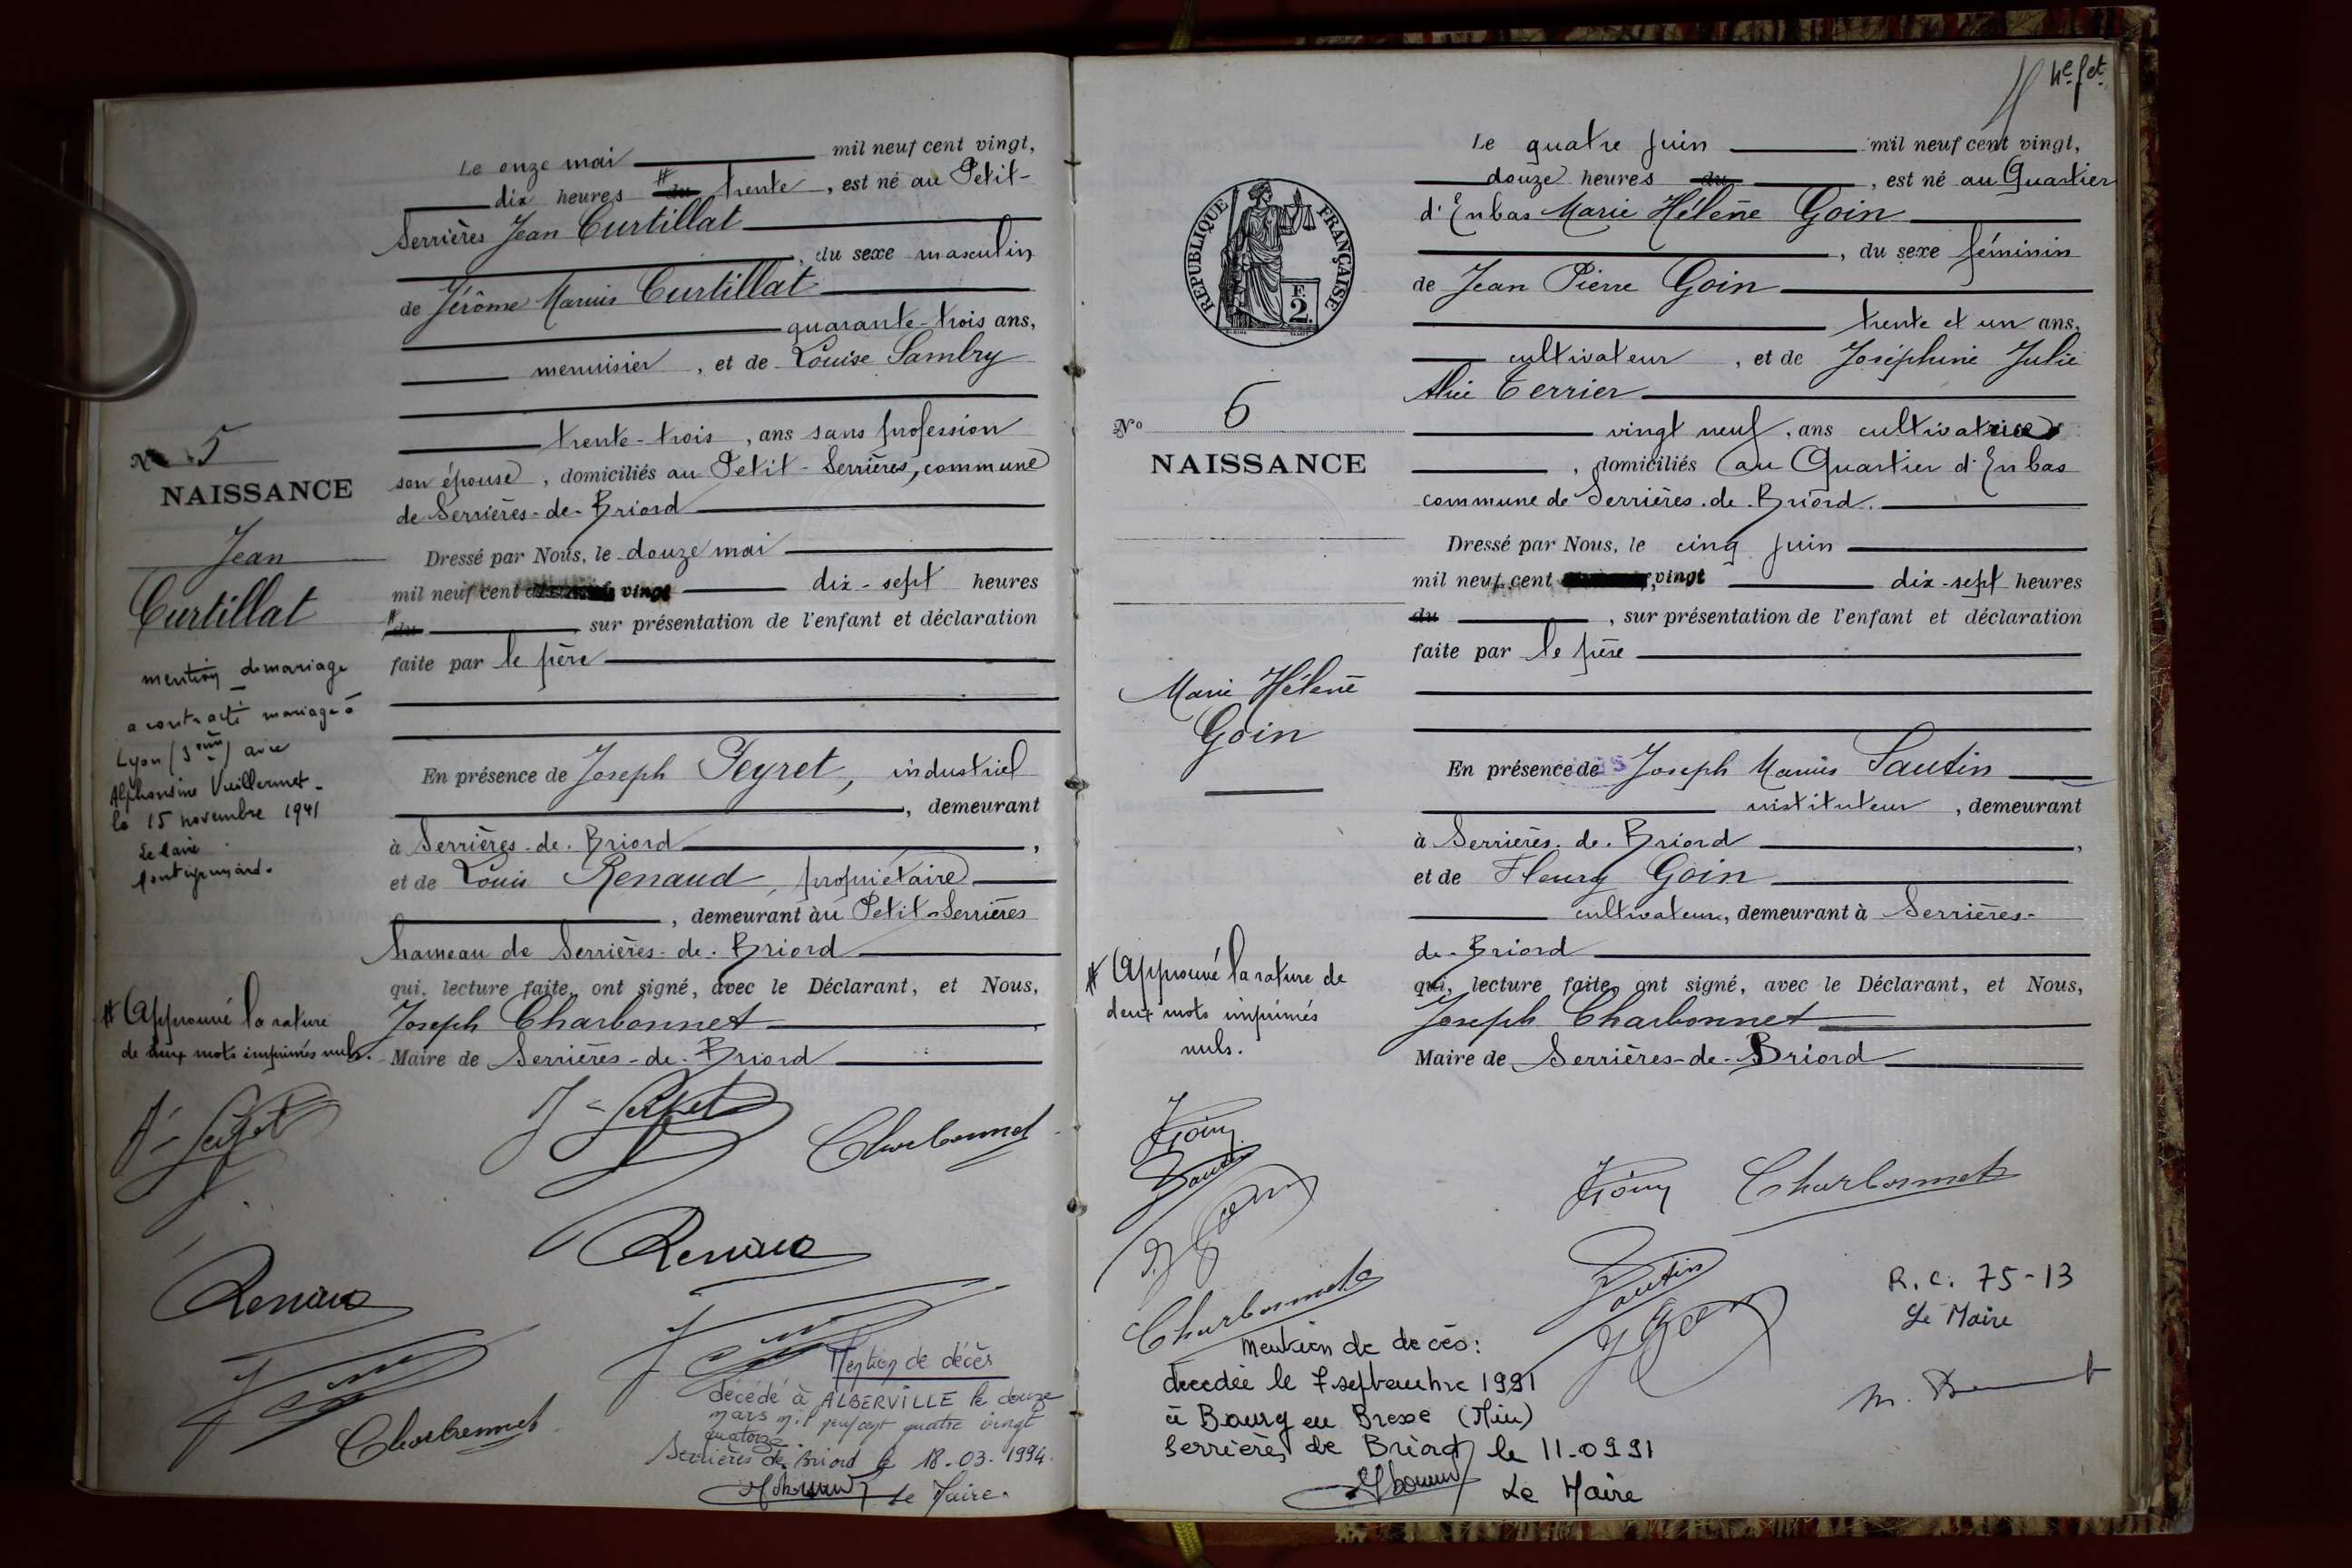 Le onze mai mil neuf cent vingt,
dix heures # du trente, est né au Petit-
Serrières Jean Curtillat
, du sexe masculin
de Jérôme Marius Curtillat
quarante-trois ans,
menuisier, et de Louise Sambry
trente-trois, ans sans profession
son épouse, domiciliés au Petit-Serrières, commune
de Serrières-de-Briord
Dressé par Nous, le douze mai
mil neuf cent vingt dix-sept heures
# du sur présentation de l'enfant et déclaration
faite par le père
En présence de Joseph Peyret, industriel
, demeurant
à Serrières-de-Briord,
et de Louis Renaud, propriétaire
, demeurant au Petit-Serrières
hameau de Serrières-de-Briord
qui, lecture faite, ont signé, avec le Déclarant, et Nous,
Joseph Charbonnet
Maire de Serrières-de-Briord
N° 5
NAISSANCE
Jean
Curtillat
mention de mariage
a contracté mariage à
Lyon (3ème) avec
Alphonsine Vuillermet
le 15 novembre 1941
Le Maire
# Approuvé la rature
de deux mots imprimés nuls.
Charbonnet
Renaud
Renaud
Charbonnet
Mention de décès
décédé à ALBERVILLE le douze
mars mil neuf cent quatre vingt
quatorze.
Serrières de Briord le 18.03.1994.
Le Maire.
4e fet
Le quatre juin mil neuf cent vingt,
douze heures du, est né au Quartier
d'Enbas Marie Hélène Goin
, du sexe féminin
de Jean Pierre Goin
trente et un ans,
cultivateur, et de Joséphine Julie
Alice Terrier
vingt neuf, ans cultivatrice
, domiciliés au Quartier d'Enbas
commune de Serrières-de-Briord.
Dressé par Nous, le cinq juin
mil neuf cent vingt dix-sept heures
du, sur présentation de l'enfant et déclaration
faite par le père
En présence de Joseph Marius Sautin
instituteur, demeurant
à Serrières-de-Briord,
et de Fleury Goin
cultivateur, demeurant à Serrières-
de-Briord
qui, lecture faite, ont signé, avec le Déclarant, et Nous,
Joseph Charbonnet
Maire de Serrières-de-Briord
REPUBLIQUE FRANÇAISE
F.
2.
N° 6
NAISSANCE
Marie Hélène
Goin
# Approuvé la rature de
deux mots imprimés
nuls.
Goin
Goin Charbonnet
Sautin
Charbonnet
R.C. 75-13
Le Maire
Mention de décès:
décédée le 7 septembre 1991
à Bourg en Bresse (Ain)
Serrières de Briord le 11-0991
Le Maire